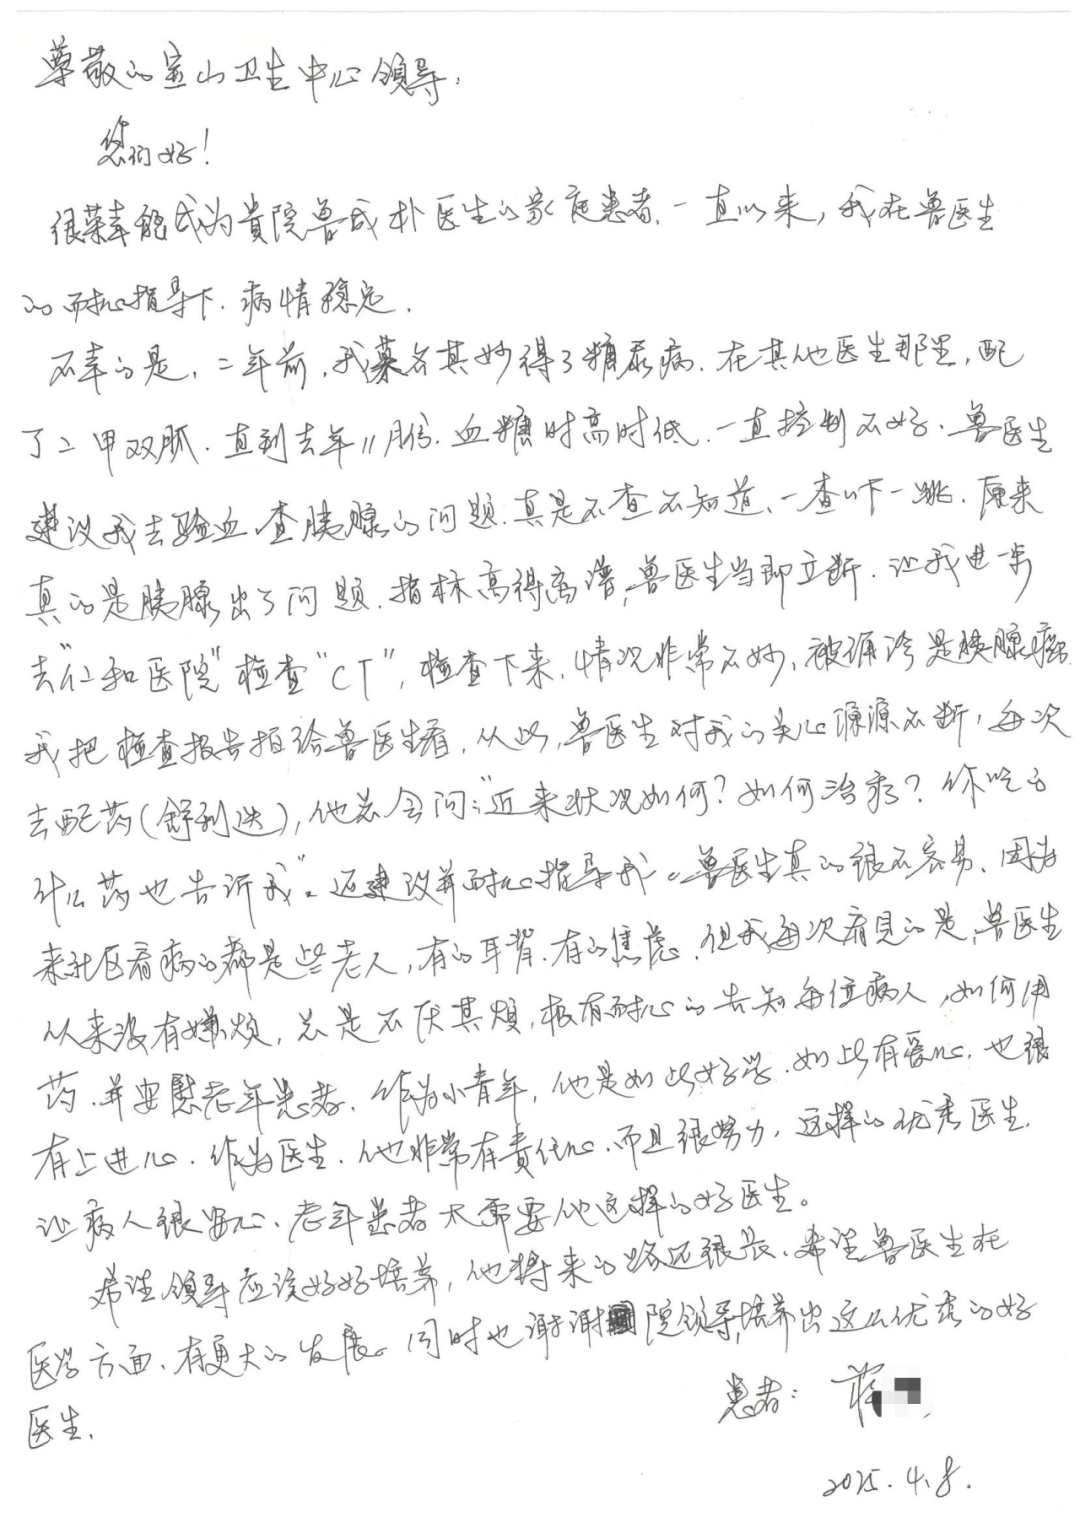 尊敬的宝山卫生中心领导：
您们好！
很荣幸能成为贵院兽成朴医生的家庭患者、一直以来，我在兽医生
的耐心指导下．病情稳定．
不幸的是，二年前，我莫名其妙得了糖尿病．在其他医生那里，配
了二甲双胍．直到去年11月份．血糖时高时低．一直控制不好．兽医生
建议我去验血、查胰腺的问题．真是不查不知道、一查吓一跳．原来
真的是胰腺出了问题．指标高得离谱，兽医生当即立断．让我进一步
去“仁和医院”检查“CT”，检查下来，情况非常不妙，被确诊是胰腺癌．
我把检查报告拍给兽医生看，从此，兽医生对我的关心源源不断，每次
去配药(舒利迭)，他总会问：“近来状况如何？如何治疗？你吃的
什么药也告诉我”。还建议并耐心指导我。兽医生真的很不容易．因为
来社区看病的都是些老人，有的耳背．有的焦虑．但我每次看见的是，兽医生
从来没有嫌烦，总是不厌其烦，极有耐心的告知每位病人，如何用
药．并安慰老年患者．作为小青年，他是如此好学．如此有爱心．也很
有上进心．作为医生．他非常有责任心．而且很努力，这样的优秀医生．
让病人很安心、老年患者太需要他这样的好医生。
希望领导应该好好培养，他将来的路还很长、希望兽医生在
医学方面．有更大的发展。同时也谢谢院领导，培养出这么优秀的好
医生．
患者：蒋
2025.4.8.